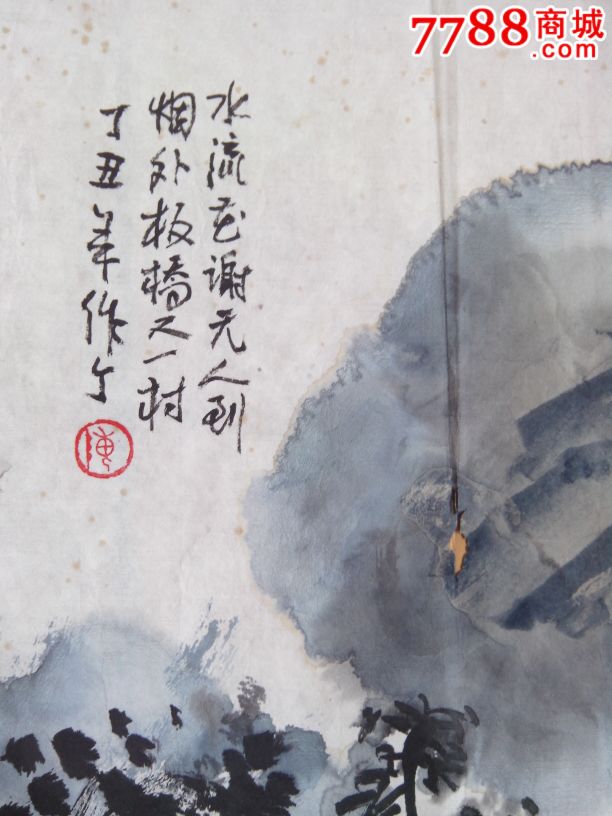 7788商城
.com
水流花谢无人到
烟外板橋又一村
丁丑年作